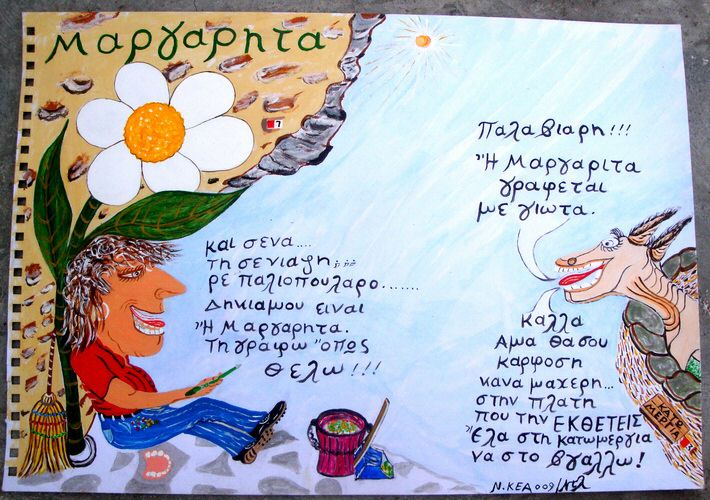 Μαργαρητα
7
Παλαβιαρη!!!
"Η Μαργαριτα
γραφεται
με γιωτα.
Και σενα....
τη σενιαζη;....
ρε παλιοπουλαρο.......
Δηκιαμου ειναι
"Η Μαργαρητα.
Τη γραφω "οπως
θελω!!!
Καλλα
Αμα θα σου
καρφοση
κανα μαχερη...
στην πλατη
που την ΕΚΘΕΤΕΙΣ
Έλα στη κατωμεργια
να στο βγαλλω!
ΚΑΤΩ
ΜΕΡΓΙΑ
Ν.ΚΕΑ 009